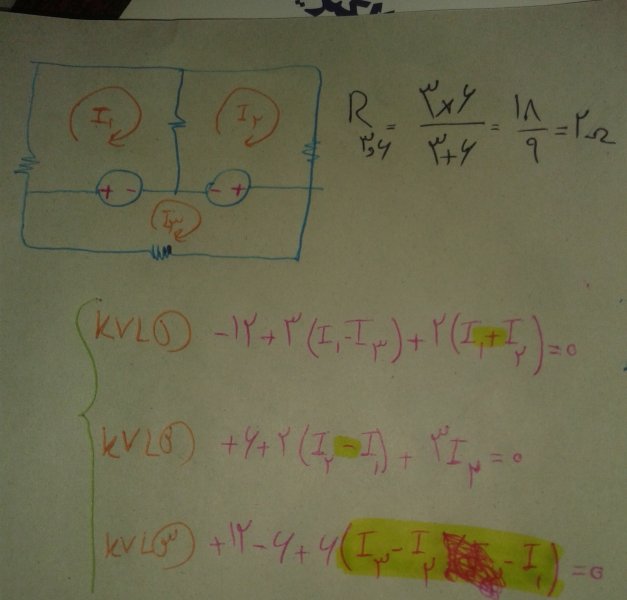 I₁ I₂
I₃
+ - - +
R۳و۶ = ۳×۶ / ۳+۶ = ۱۸ / ۹ = ۲Ω
KVL① -۱۲+۳(I₁-I۳)+۲(I₁+I۲)=۰
KVL② +۶+۲(I۲-I₁)+۳I۲=۰
KVL③ +۱۲-۶+۶(I۳-I۲ -I₁)=۰